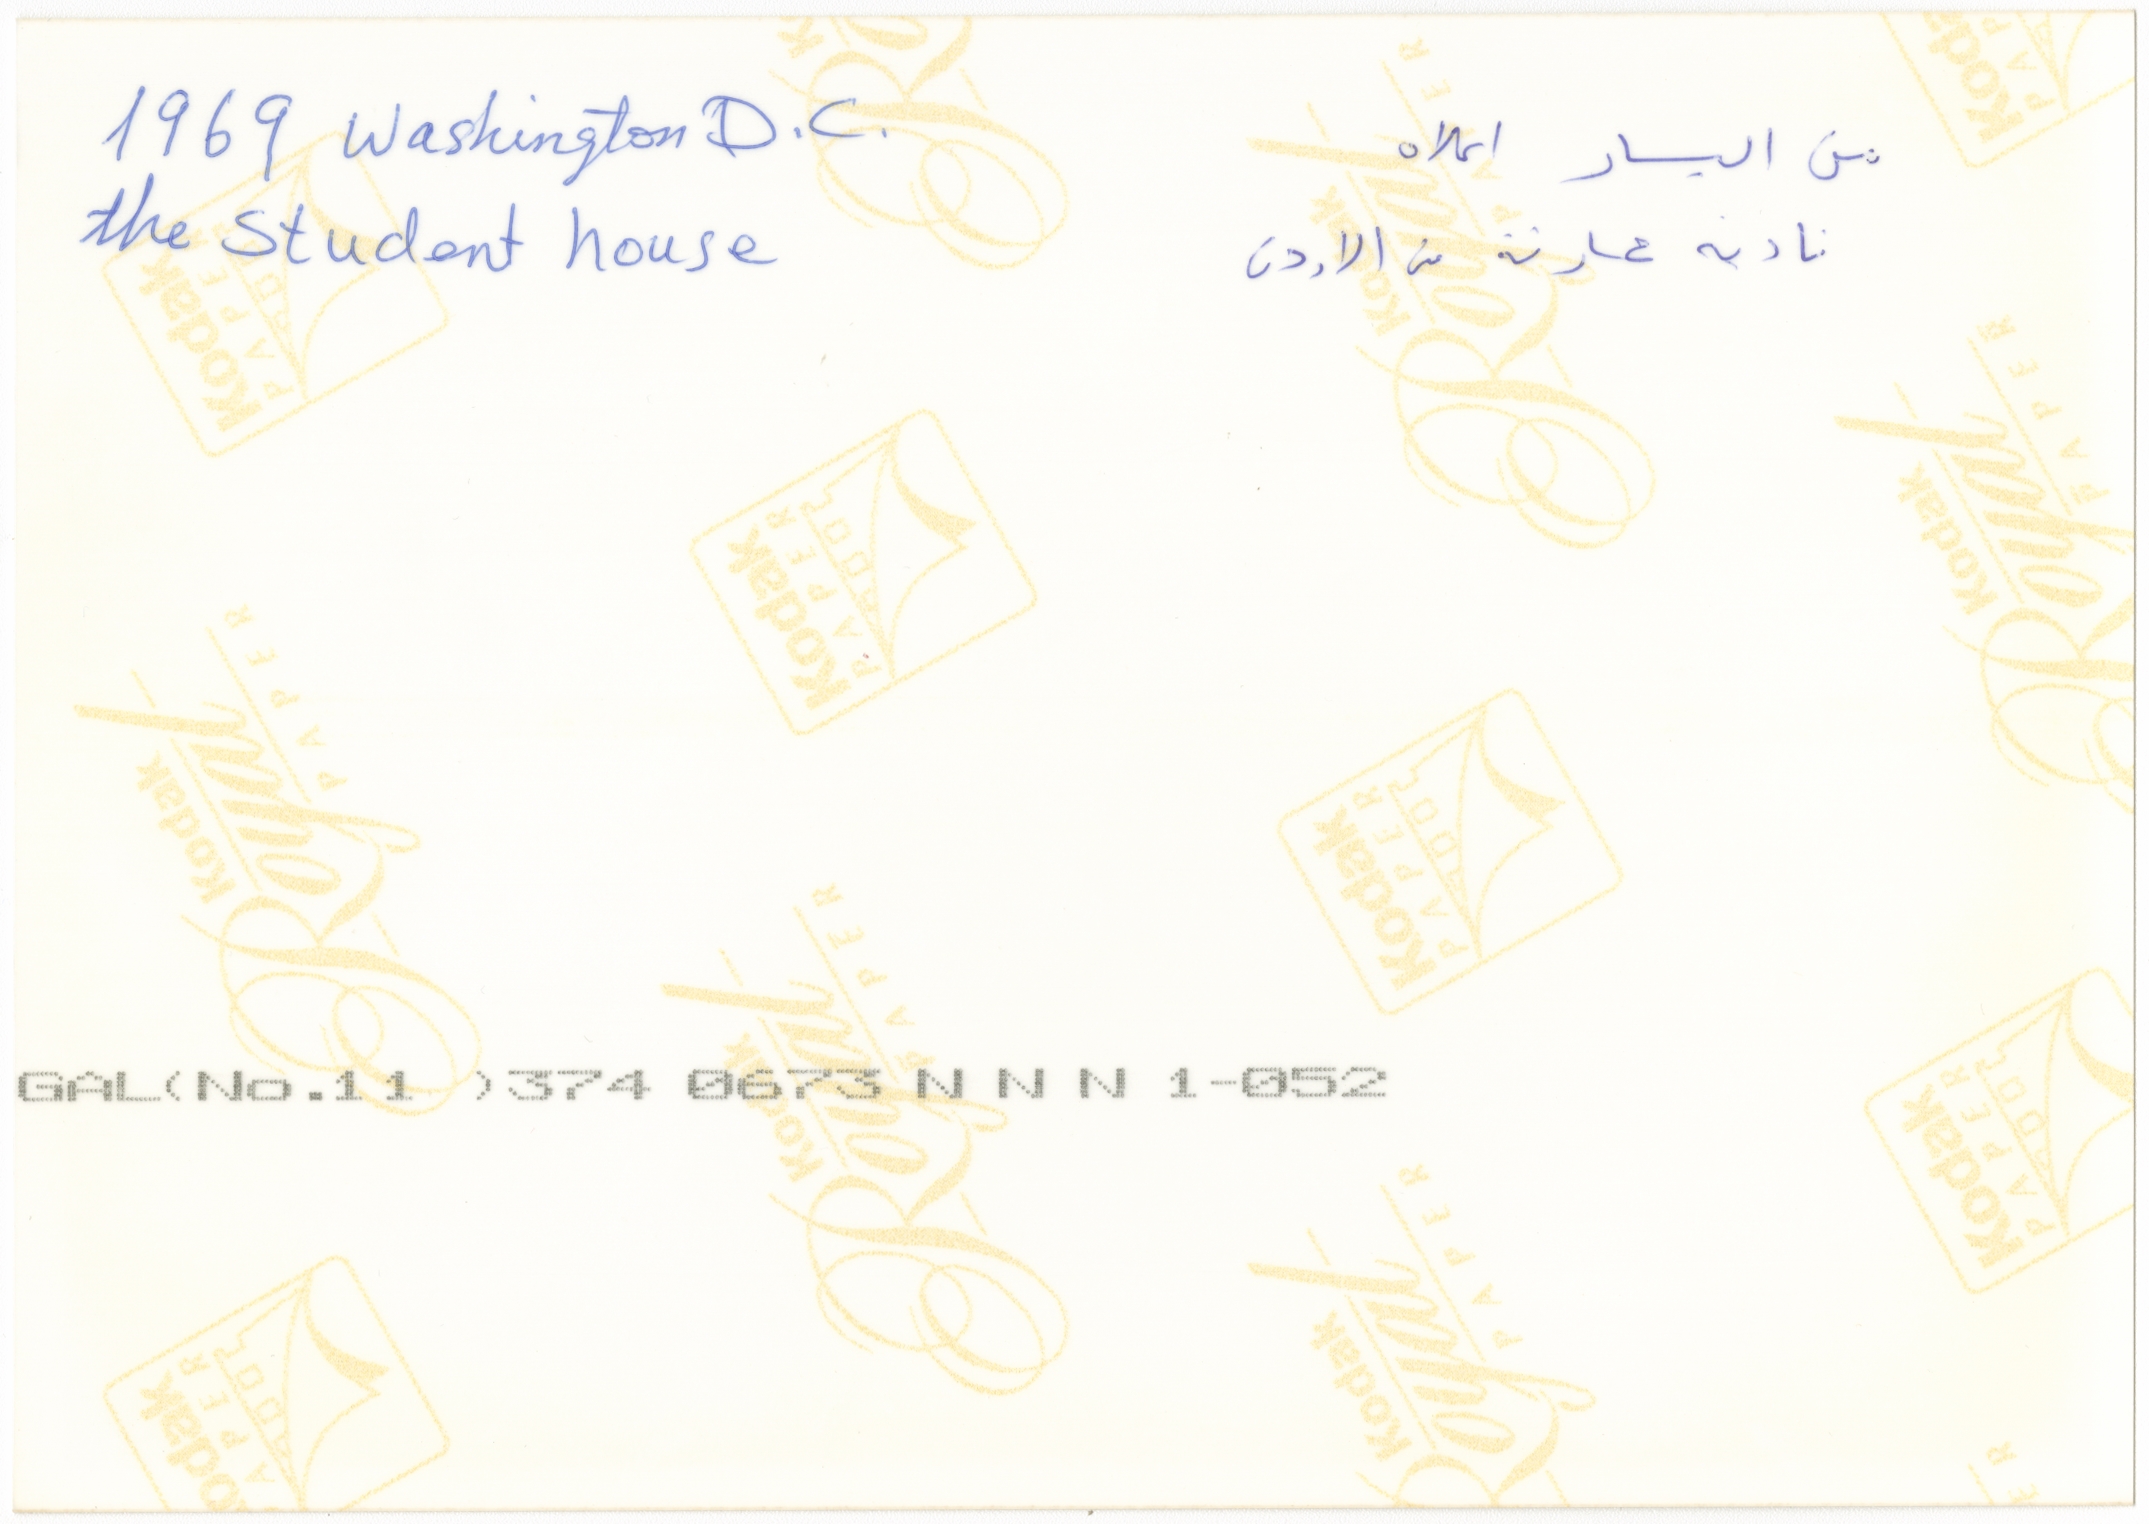 1969 Washington D.C.
the Student house
من اليسار املاه
نادية عمارنة من الاردن
GAL(No.11 )374 0673 N N N 1-052
Kodak
PAPER
Kodak
Royal
PAPER